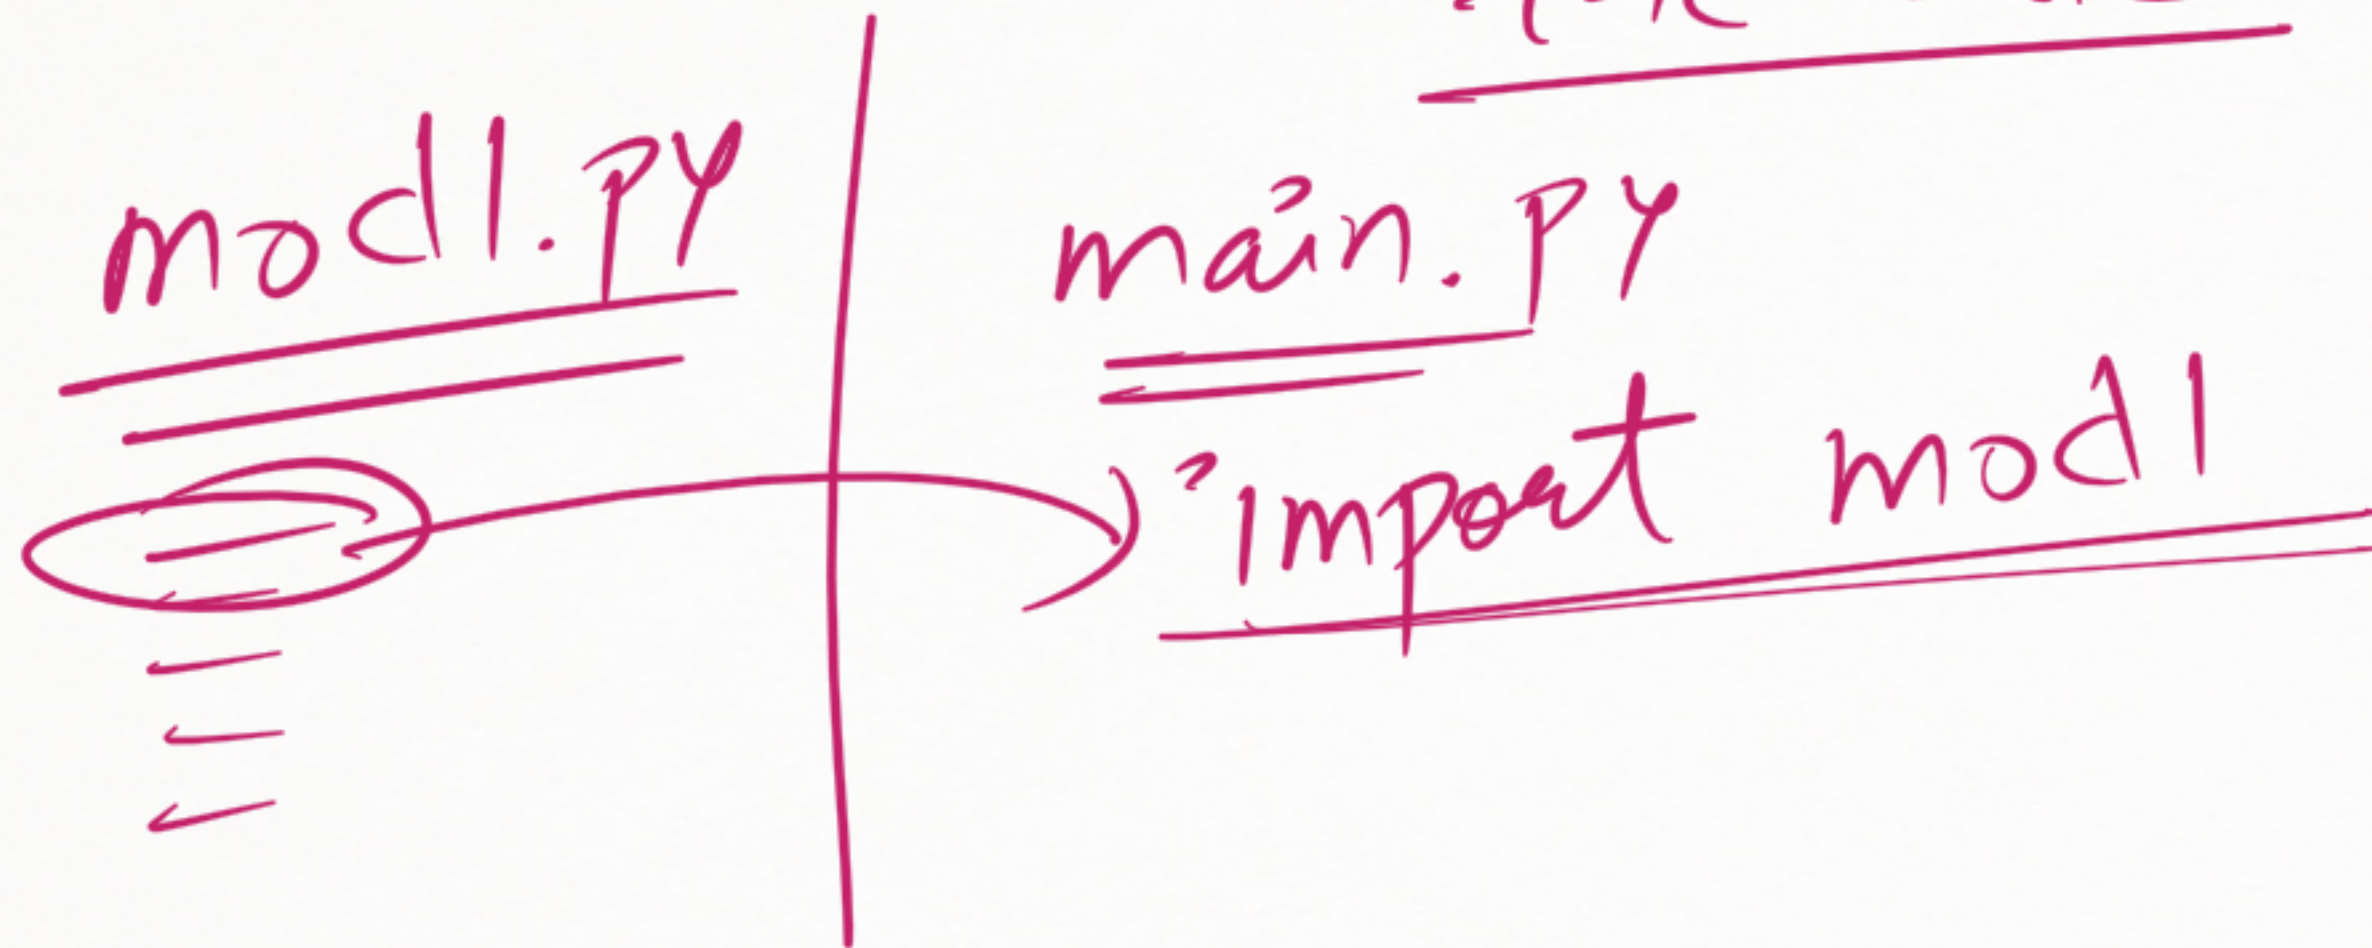 mod1.py
main.py
import mod1